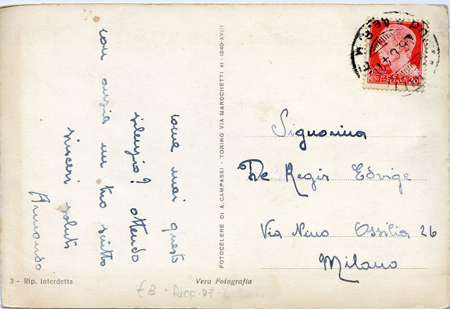 come mai questo
silenzio? attendo
con ansia un tuo scritto
sinceri saluti
Armando
FOTOCELERE DI A. CAMPASSI - TORINO VIA MAROCHETTI 41 - 1940-XVIII
Signorina
De Regis Edvige
Via Nino Ossilia 26
Milano
3 - Rip. interdetta
Vera Fotografia